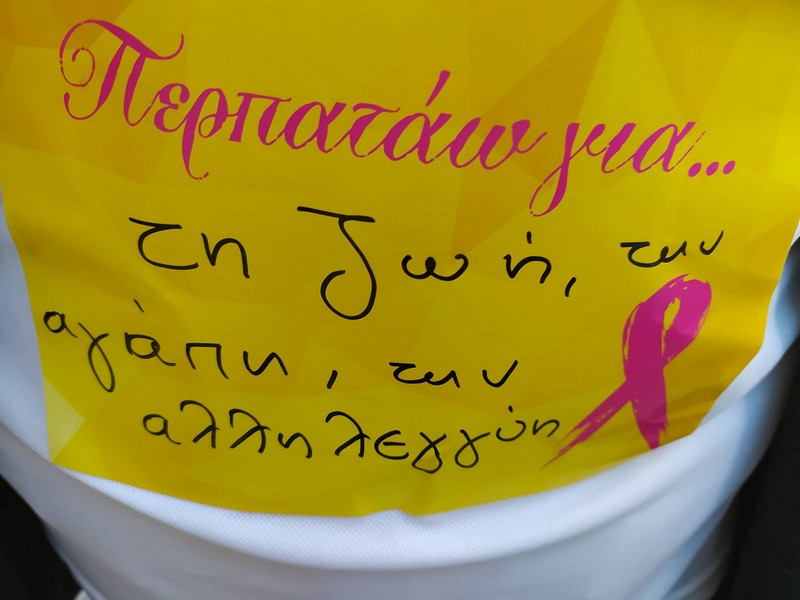 Περπατάω για...
τη ζωή, την
αγάπη, την
αλληλεγγύη